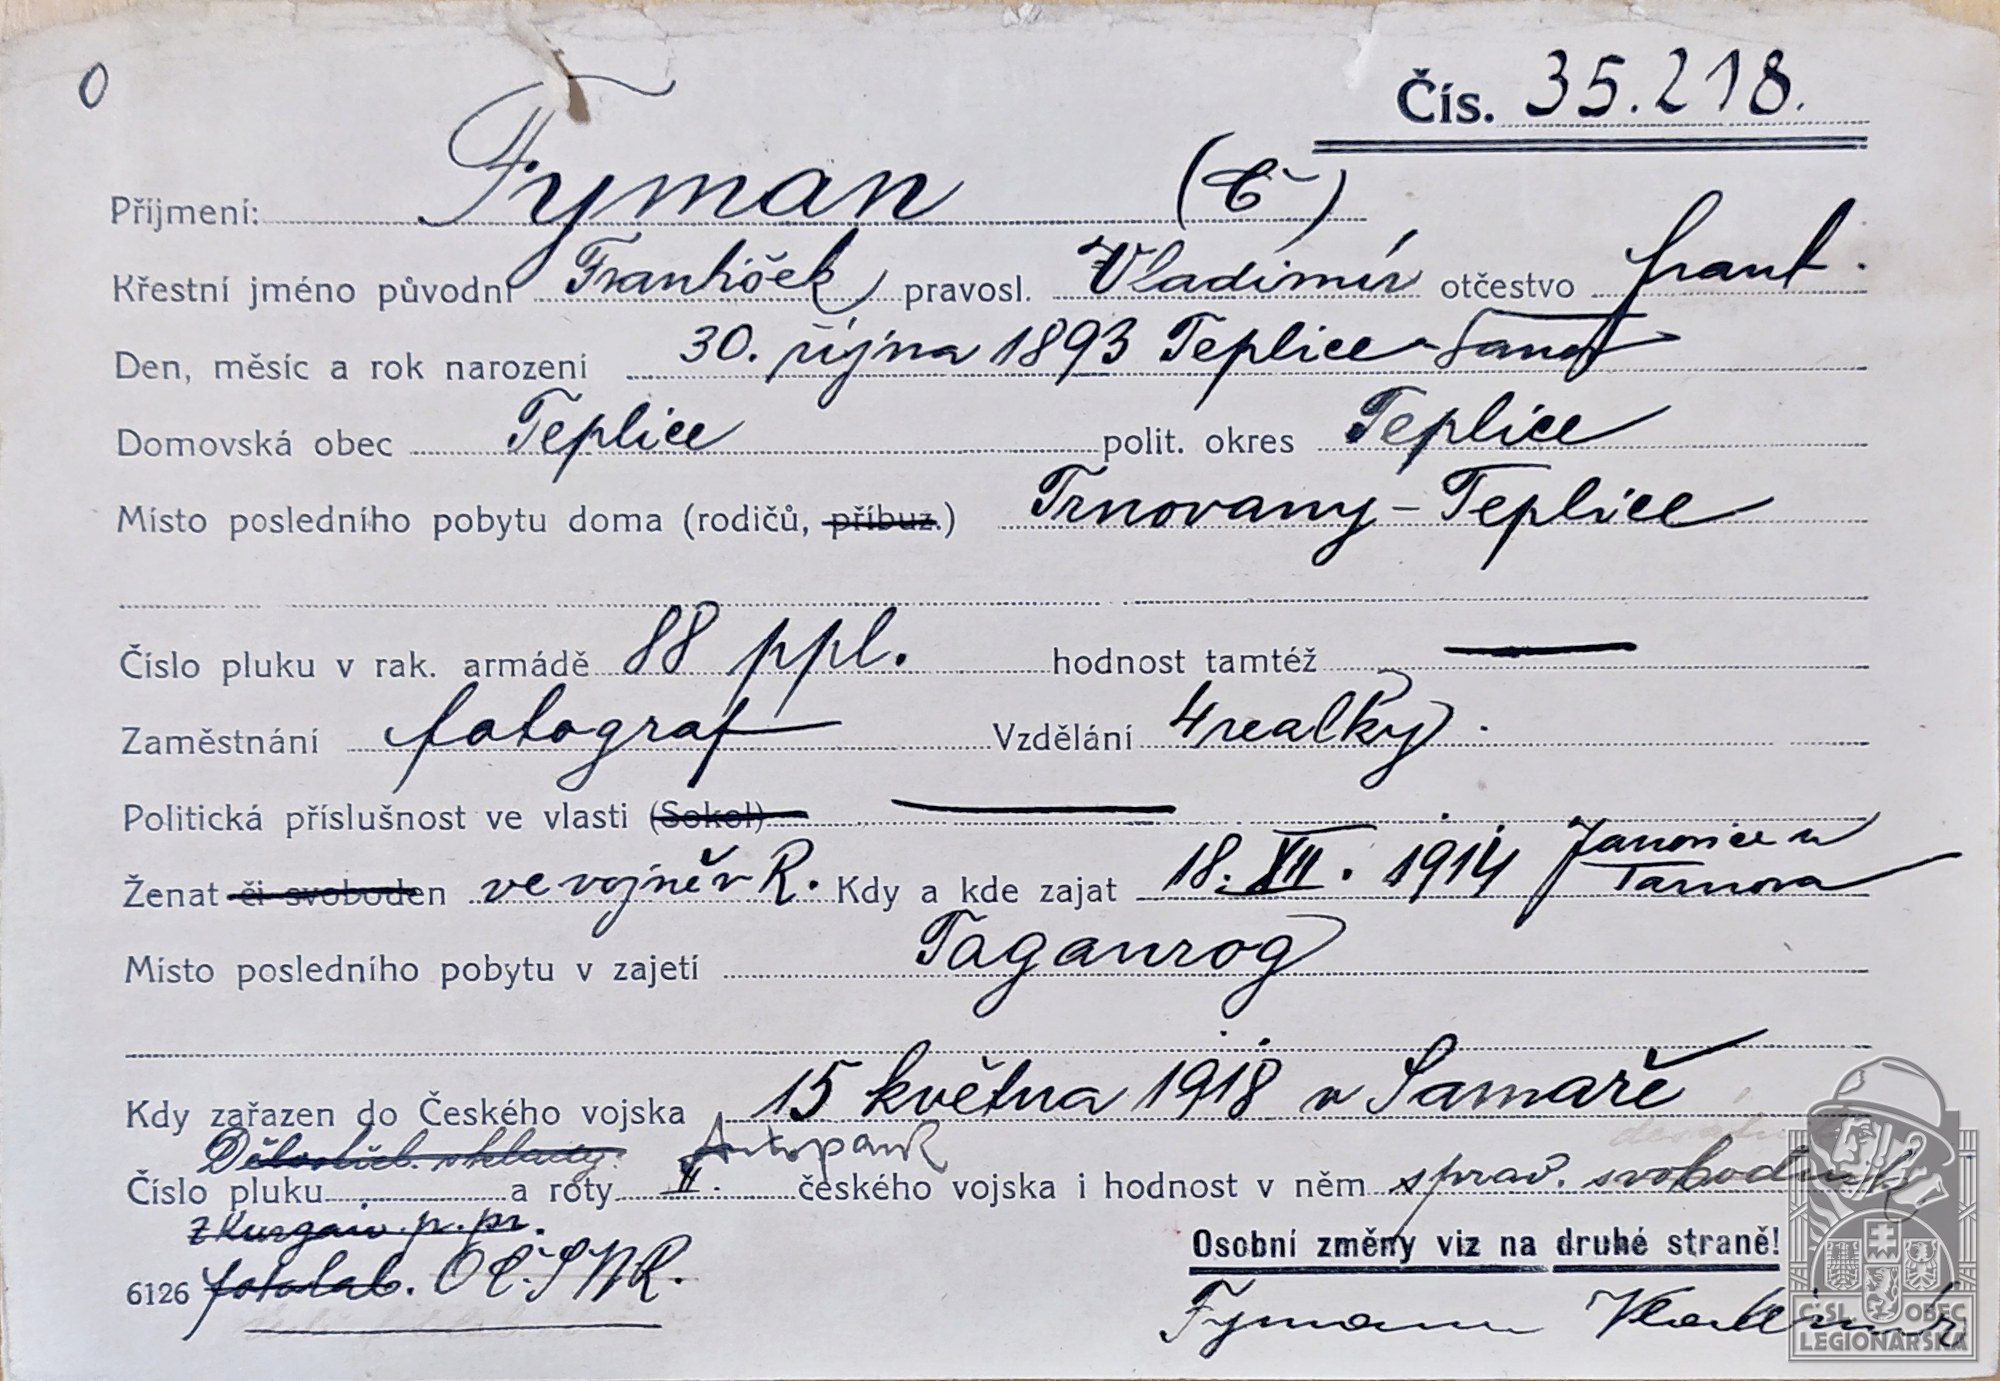 0
Čís. 35.218.
Příjmení: Fyman (Č)
Křestní jméno původní František pravosl. Vladimír otčestvo Frant.
Den, měsíc a rok narození 30. října 1893 Teplice-Šanov
Domovská obec Teplice polit. okres Teplice
Místo posledního pobytu doma (rodičů, příbuz.) Trnovany - Teplice
Číslo pluku v rak. armádě 88 ppl. hodnost tamtéž —
Zaměstnání fotograf Vzdělání 4 realky.
Politická příslušnost ve vlasti (Sokol) —
Ženat či svoboden ve vojně v R. Kdy a kde zajat 18. XII. 1914 Janovice u Tarnova
Místo posledního pobytu v zajetí Taganrog
Kdy zařazen do Českého vojska 15 května 1918 v Samaře
Autopark
Číslo pluku a roty II. českého vojska i hodnost v něm sprav. svobodník
z Kurgaň. p. pr.
Osobní změny viz na druhé straně!
6126 fotolab. OČSNR.
Fyman Vladimír
ČSL. OBEC
LEGIONÁŘSKÁ